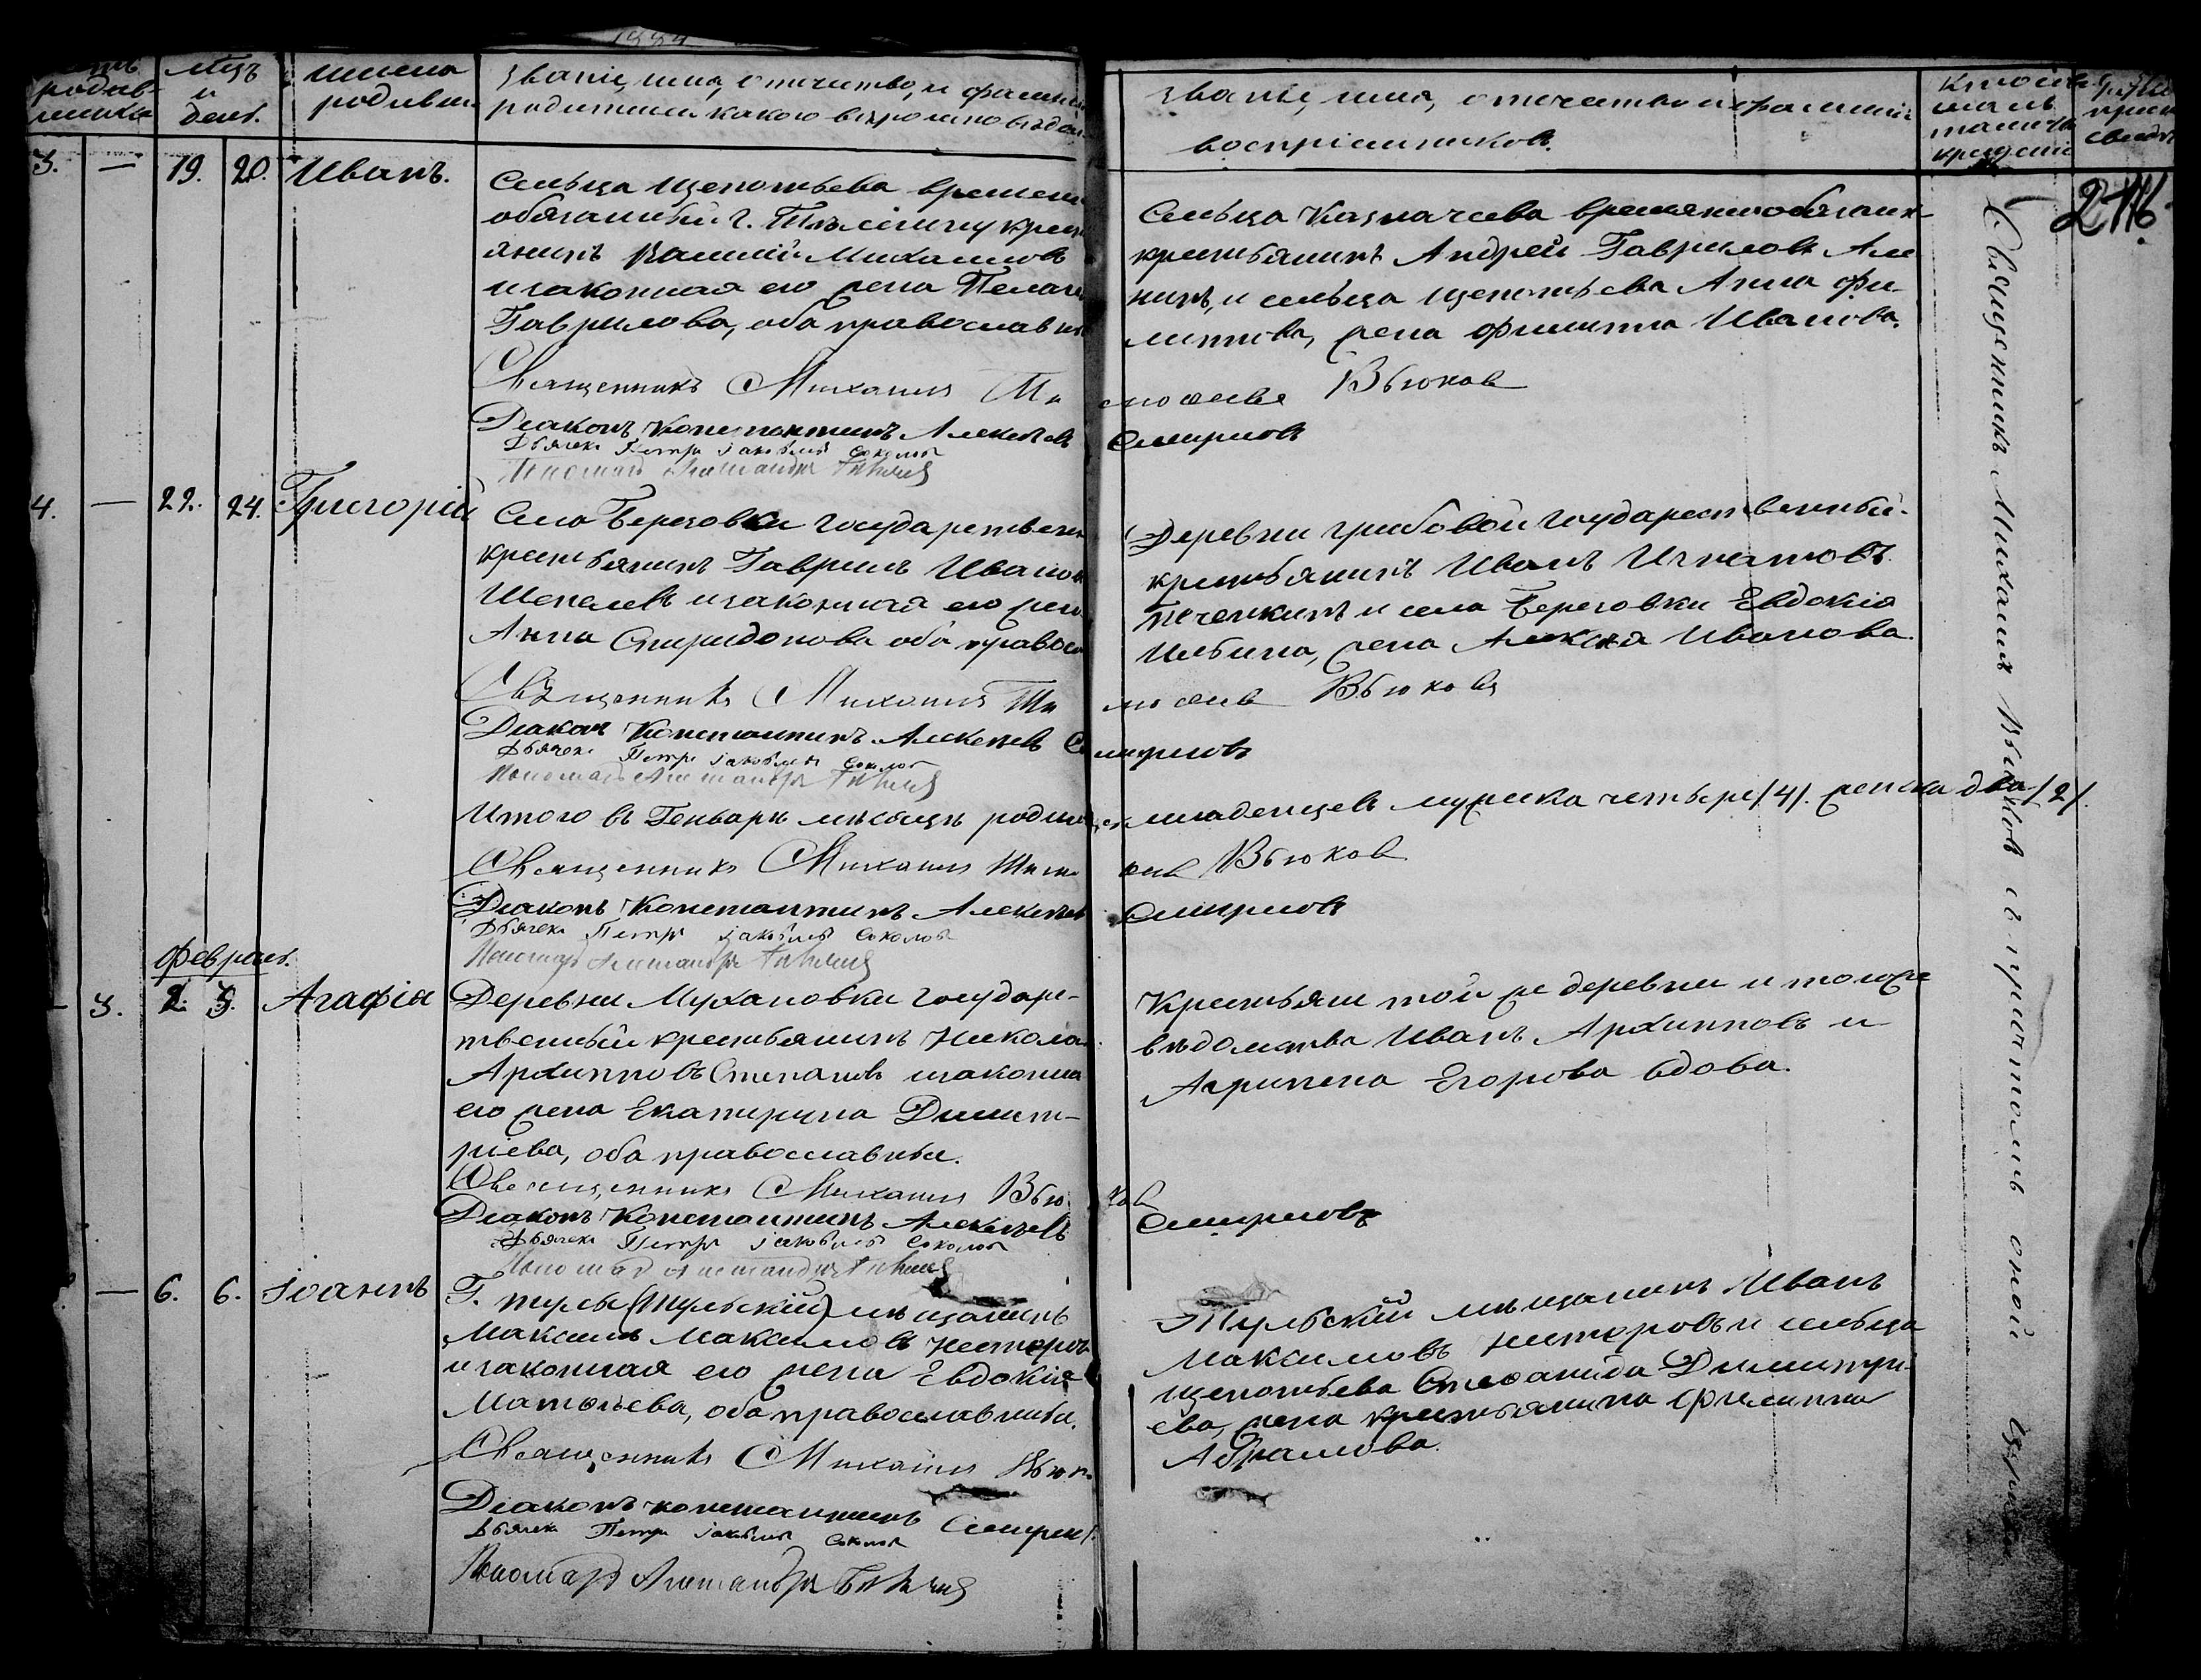 мѣць
и
день.
имена
родивш.
званіе, имя, отчество, и фамилія
родителей какого вѣроисповѣдан.
званіе, имя, отчество и фамилія
воспріемниковъ.
3. — 19. 20. Иванъ.
Сельца Щепотьева времен
обязанный Г. крест
янинъ Василій Михаиловъ
и законная его жена Пелаге
Гаврилова, оба православн
Священникъ Михаилъ
Діаконъ Константинъ Алексѣевъ
Дьячекъ Петръ Іаковлевъ Соколов
Пономарь Александръ
Сельца Казначеева временнообязан
крестьянинъ Андрей Гавриловъ Але
нинъ, и сельца Щепотьева Анна Фи
липпова, жена Филиппа Иванова.
Вьюков
Смирновъ
216.
4. — 22. 24. Григорій
Села Березовки государствен
крестьянинъ Гавріилъ Иванов
Шепелевъ и законная его жен
Анна Спиридонова оба правосл
Священникъ Михаилъ Ти
Діаконъ Константинъ Алексѣевъ
Дьячекъ Петръ Іаковлевъ Соколов
Пономарь Александръ
Деревни Грибовой государственный
крестьянинъ Иванъ Игнатовъ
Печенкинъ и села Березовки Евдокія
Ильина, жена Алексѣя Иванова.
мофеев Вьюковъ
Смирновъ
Итого въ Генварѣ мѣсяцѣ родил младенцевъ мужска четыре /4/. женска два /2/.
Священникъ Михаилъ Тим Вьюков
Діаконъ Константинъ Алексѣев Смирновъ
Дьячекъ Петръ Іаковлевъ Соколов
Пономарь Александръ
Февраль.
— 3. 2. 3. Агафія
Деревни Мухановки государ-
ственный крестьянинъ Никола
Архипповъ Степановъ и законна
его жена Екатерина Димит-
ріева, оба православные.
Священникъ Михаилъ Вьюков
Діаконъ Константинъ Алексѣевъ Смирновъ
Дьячекъ Петръ Іаковлевъ Соколов
Пономарь Александръ
Крестьяне той же деревни и того же
вѣдомства Иванъ Архипповъ и
Агрипена Егорова вдова.
— 6. 6. Іоаннъ
Г. Тулы (Тульскій) мѣщанинъ
Максимъ Максимовъ Несторов
и законная его жена Евдокія
Матфѣева, оба православные.
Священникъ Михаилъ Вьюк
Діаконъ Константинъ Смирн
Дьячекъ Петръ Іаковлевъ Соколов
Пономарь Александръ
Тульскій мѣщанинъ Иванъ
Максимовъ Несторовъ и сельца
Щепотьева Стефанида Димитрі
ева, жена крестьянина Филиппа
Абрамова.
Священникъ Михаилъ Вьюковъ съ причтомъ